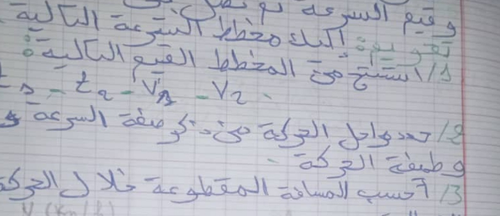 وقيم السرعة
تقويم: إليك مخطط السرعة التالية
1/ استنتج من المخطط القيم التالية:
t2 - V1 - V2 -
2/ حدد مراحل الحركة مع ذكر صفة السرعة و
وطبيعة الحركة.
3/ أحسب المسافة المقطوعة خلال الحركة
V (Km/h)